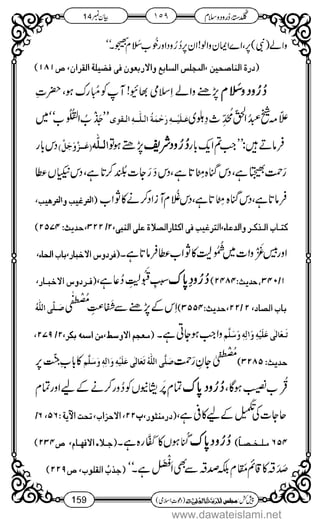 بیان نمبر 14
۱۵۹
گلدستۂ درود و سلام
والے (نبی) پر، اے ایمان والو! ان پر دُرُود اور خوب سلام بھیجو۔‘‘
(درة الناصحین ،المجلس السابع والاربعون فی فضیلة القران، ص ۱۸۱)
دُرُود وسلام پڑھنے والے اسلامی بھائیو! آپ کو مبارک ہو، حضرتِ
علّامہ شیخ عبدُ الحق مُحدِّث دِہلوی عَلَیْہِ رَحْمَۃُ اللّٰہِ القوی ’’جذبُ القُلُوب‘‘ میں
فرماتے ہیں: ’’جب تم ایک بار دُرُود شریف پڑھتے ہو تو اللّٰہ عَزَّوَجَلَّ دس بار
رحمت بھیجتا ہے، دس گناہ مٹاتا ہے، دس دَرَجات بلند کرتا ہے، دس نیکیاں عطا
فرماتا ہے، دس گناہ مٹاتا ہے، دس غلام آزاد کرنے کا ثواب (الترغیب والترھیب،
کتاب الذکر والدعاء،الترغیب فی اکثارالصلاة علی النبی،۳۲۲/۲، حدیث: ۲۵۷۴)
اور بیس غزوات میں شُمُولیت کا ثواب عطا فرماتا ہے۔ (فردوس الاخبار،باب الحاء،
۳۴۰/۱،حدیث:۲۴۸۴) دُرُودِ پاک سببِ قبولیتِ دُعا ہے، (فردوس الاخبار،
باب الصاد، ۲۲/۲، حدیث:۳۵۵۴) اِس کے پڑھنے سے شفاعتِ مُصْطَفٰے صَلَّی اللّٰہُ
تَعَالٰی عَلَیْہِ وَاٰلِہٖ وَسَلَّم واجب ہوجاتی ہے۔ (معجم الاوسط،من اسمه بکر،۲۷۹/۲،
حدیث: ۳۲۸۵) مُصْطَفٰے جانِ رحمت صَلَّی اللّٰہُ تَعَالٰی عَلَیْہِ وَاٰلِہٖ وَسَلَّم کا بابِ جنّت پر
قُرب نصیب ہوگا، دُرُودِ پاک تمام پریشانیوں کو دور کرنے کے لیے اور تمام
حاجات کی تکمیل کے لیے کافی ہے، (درمنثور،پ۲۲، الاحزاب، تحت الآیة: ۵۶، ۶/
۶۵۴ ملخصاً) دُرُودِ پاک گناہوں کا کفّارہ ہے۔ (جلاء الافھام، ص ۲۳۴)
صَدَقہ کا قائم مقام بلکہ صدقہ سے بھی اَفْضَل ہے۔‘‘ (جذبُ القلوب، ص ۲۲۹)
159
www.dawateislami.net